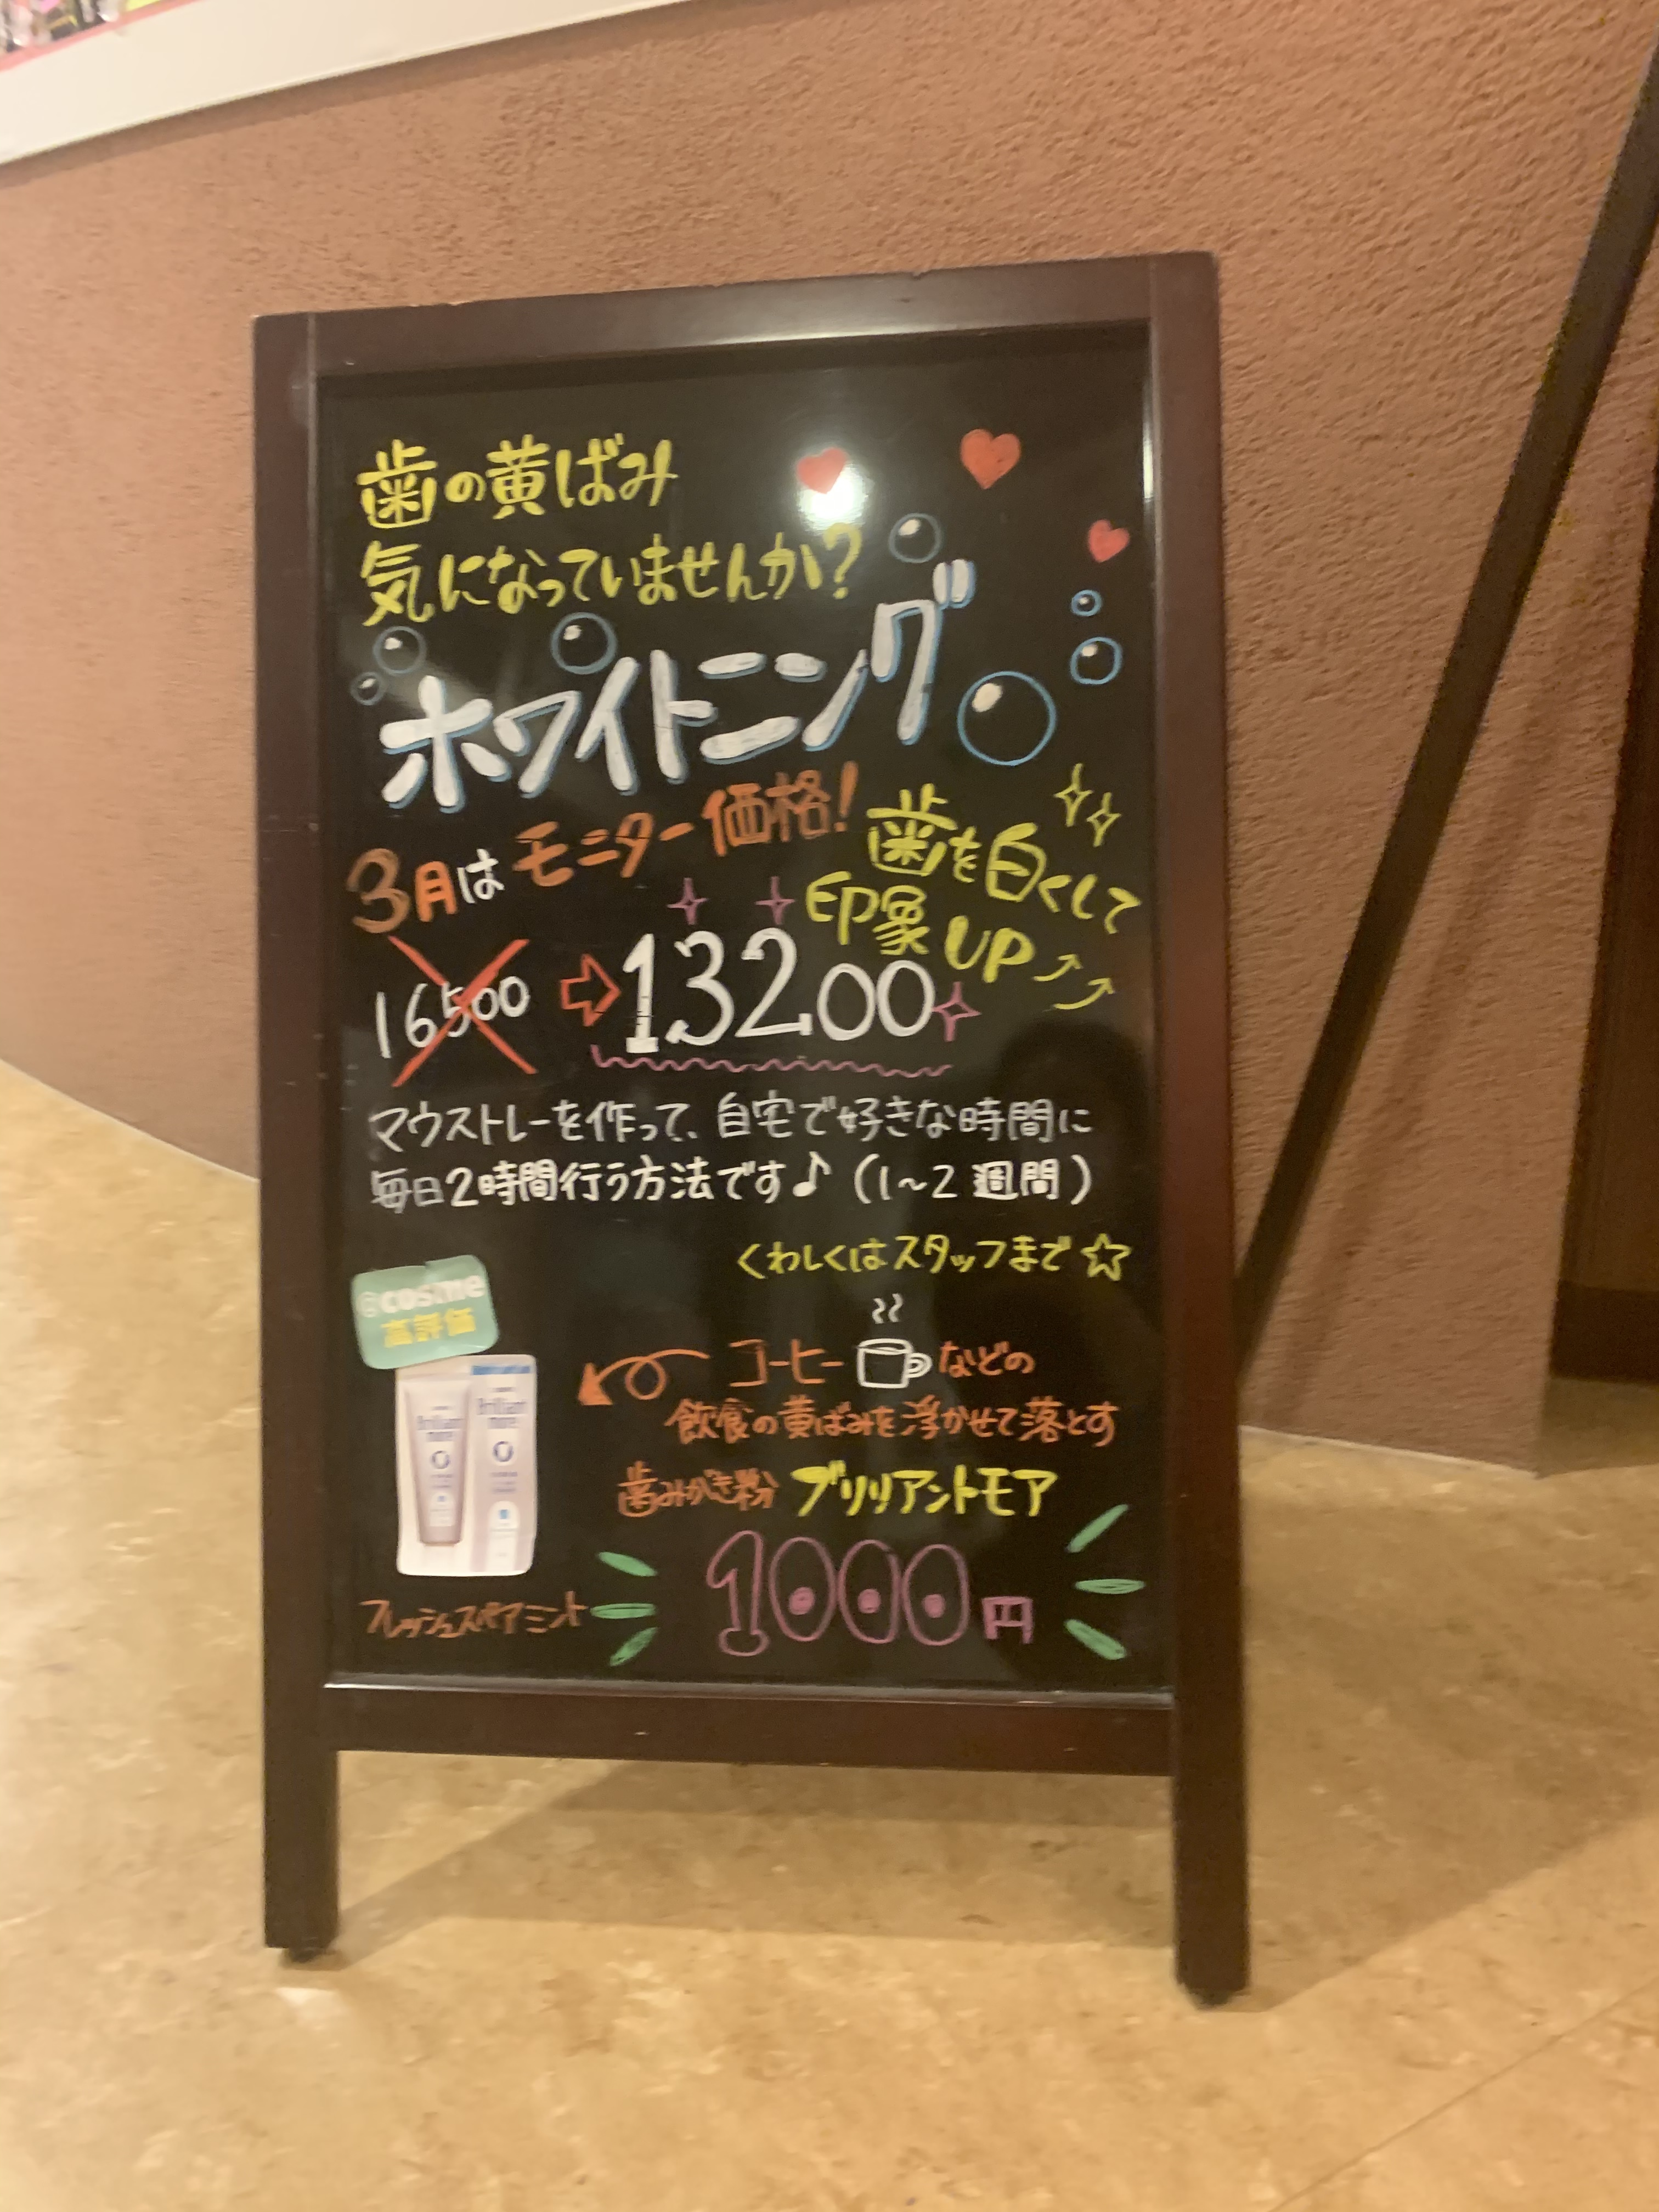 歯の黄ばみ
気になっていませんか?
ホワイトニング
3月はモニター価格!
歯を白くして
印象UP
16500⇨13200
マウストレーを作って、自宅で好きな時間に
毎日2時間行う方法です♪(1~2週間)
くわしくはスタッフまで☆
@cosme
高評価
コーヒーなどの
飲食の黄ばみを浮かせて落とす
歯みがき粉 ブリリアントモア
Brilliant
more
Brilliant
more
フレッシュスペアミント
1000円